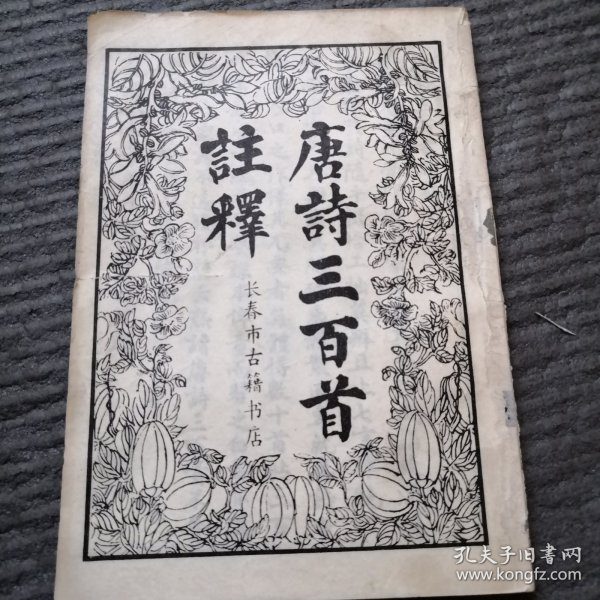 唐詩三百首
註釋
长春市古籍书店
孔夫子旧书网
www.kongfz.com